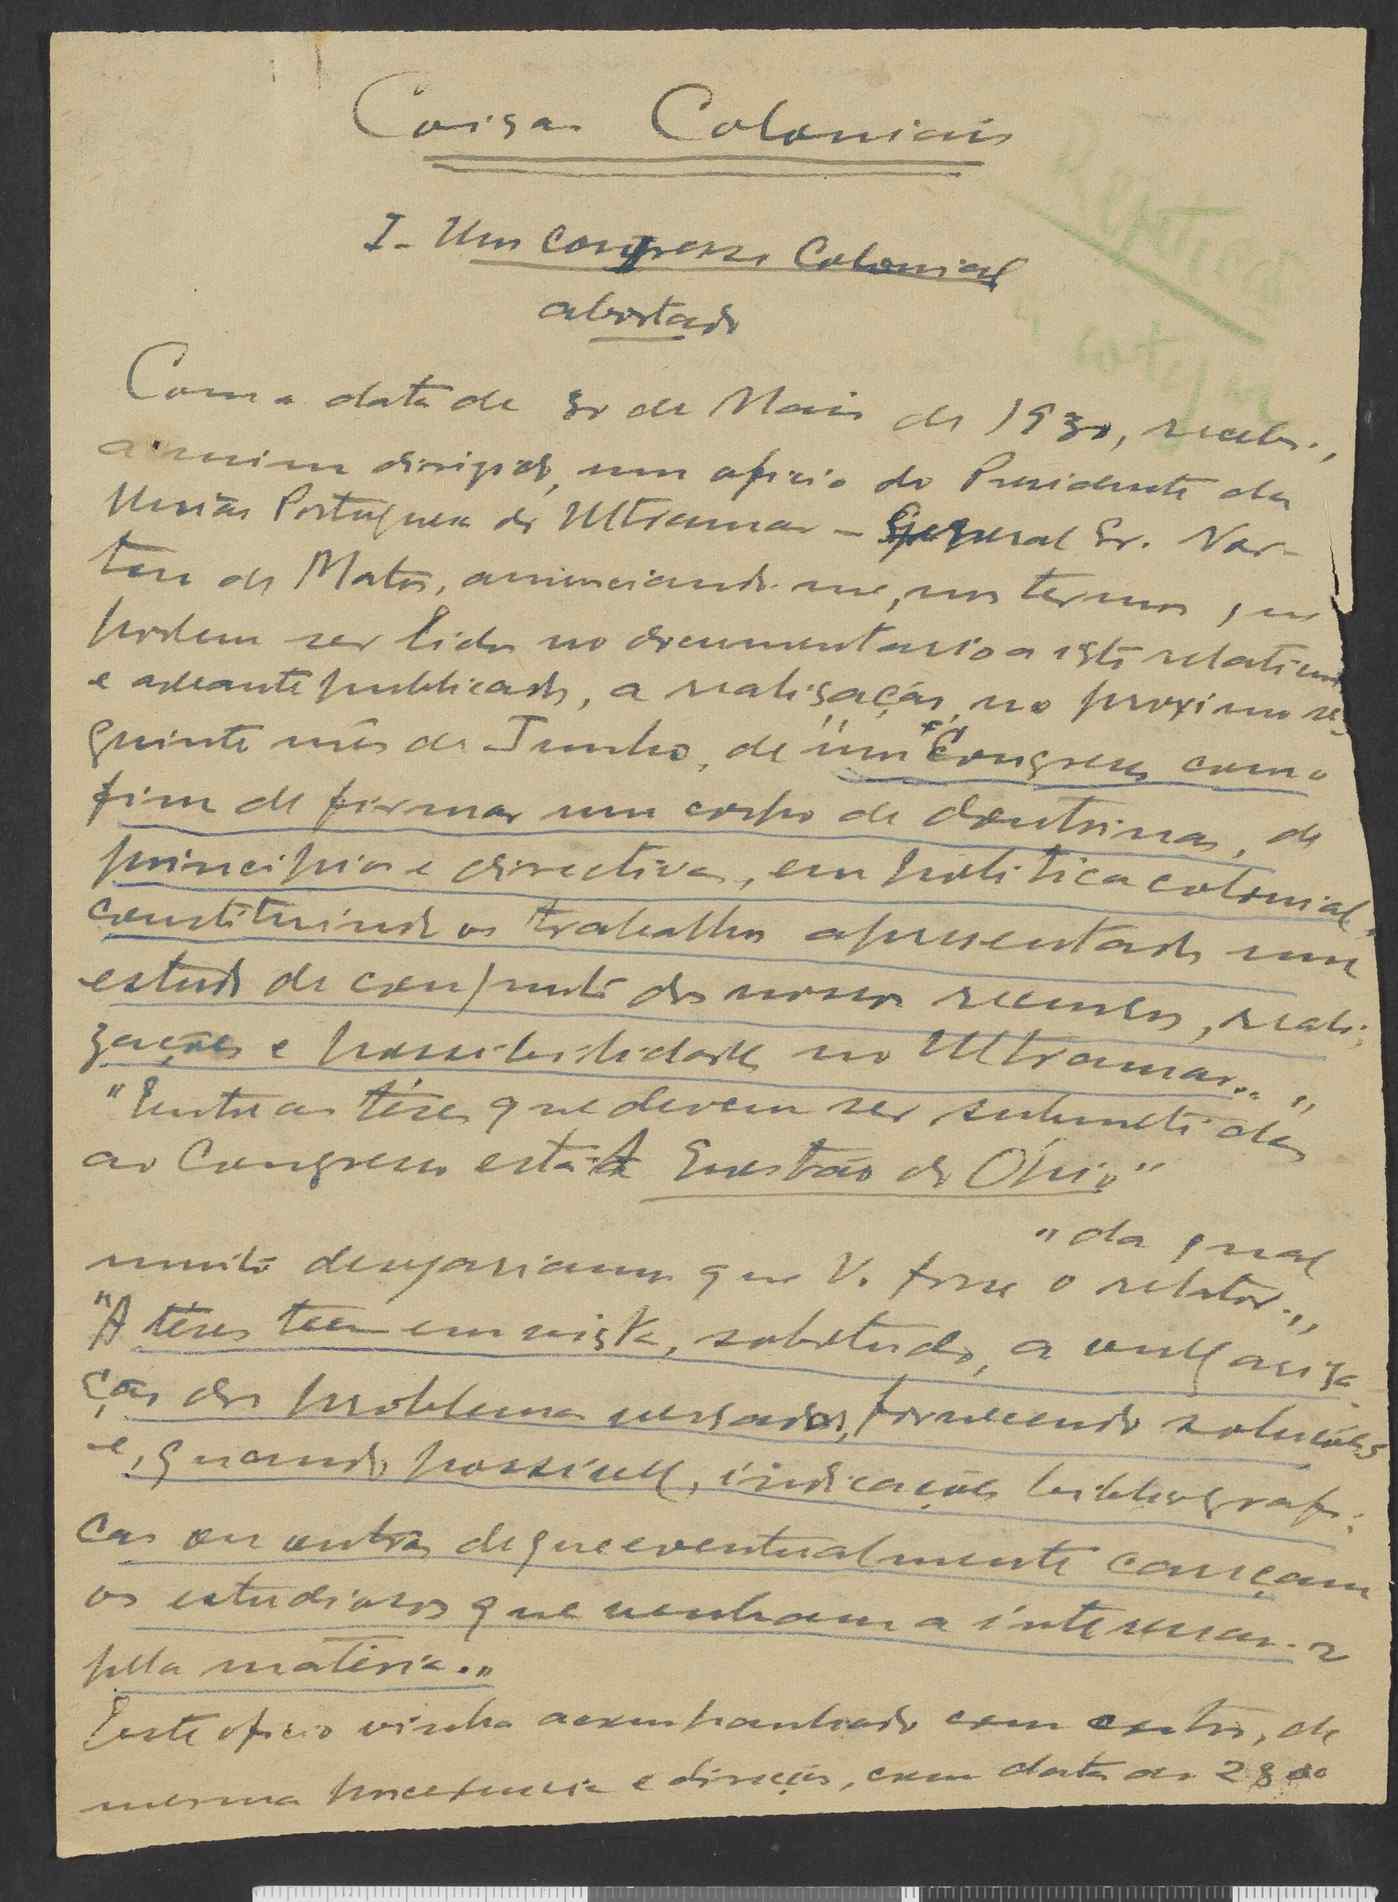 Coisas Coloniais
I - Um congresso Colonial
abortado
Com a data de 30 de Maio de 1930, recebi,
a mim dirigido, um oficio do Presidente da
União Portuguesa do Ultramar - General Sr. Nor-
ton de Matos, anunciando-me, nos termos que
podem ser lidos no documentario a isto relativo
e adeante publicado, a realisação, no proximo se-
guinte mês de Junho, de "um Congresso com o
fim de firmar um corpo de doutrinas, de
principios e directivas, em politica colonial,
constituindo os trabalhos apresentados um
estudo de conjunto dos nossos recursos, reali-
zações e possibilidades no Ultramar.."
"Entre as téses que devem ser submetidas
ao Congresso está A Questão do Ópio"
"da qual
muito desejariamos que V. fosse o relator.,,
"A téses teem em vista, sobretudo, a vulgarisa
ção dos problemas versados, fornecendo soluções
e, quando possivel, indicações bibliografi-
cas ou outras de que eventualmente careçam
os estudiosos que venham a interessar-se
pela matéria.,,
Este oficio vinha acompanhado com outro, da
mesma procedencia e direcção, com data de 28 do